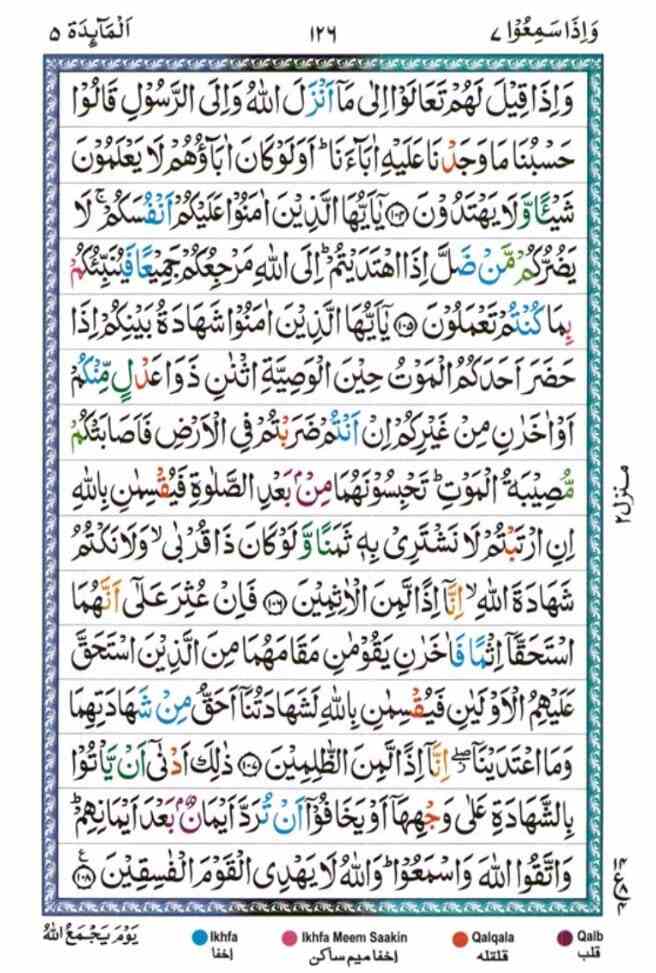 وَاِذَا سَمِعُوْا ٧ ١٢٦ اَلْمَآىِٕدَة ٥
وَاِذَا قِيْلَ لَهُمْ تَعَالَوْا اِلٰى مَاۤ اَنْزَلَ اللّٰهُ وَاِلَى الرَّسُوْلِ قَالُوْا
حَسْبُنَا مَا وَجَدْنَا عَلَيْهِ اٰبَآءَنَا ؕ اَوَلَوْ كَانَ اٰبَآؤُهُمْ لَا يَعْلَمُوْنَ
شَيْـًٔا وَّلَا يَهْتَدُوْنَ ١٠٤ يٰۤاَيُّهَا الَّذِيْنَ اٰمَنُوْا عَلَيْكُمْ اَنْفُسَكُمْ ۚ لَا
يَضُرُّكُمْ مَّنْ ضَلَّ اِذَا اهْتَدَيْتُمْ ؕ اِلَى اللّٰهِ مَرْجِعُكُمْ جَمِيْعًا فَيُنَبِّئُكُمْ
بِمَا كُنْتُمْ تَعْمَلُوْنَ ١٠٥ يٰۤاَيُّهَا الَّذِيْنَ اٰمَنُوْا شَهَادَةُ بَيْنِكُمْ اِذَا
حَضَرَ اَحَدَكُمُ الْمَوْتُ حِيْنَ الْوَصِيَّةِ اثْنٰنِ ذَوَا عَدْلٍ مِّنْكُمْ
اَوْ اٰخَرٰنِ مِنْ غَيْرِكُمْ اِنْ اَنْتُمْ ضَرَبْتُمْ فِى الْاَرْضِ فَاَصَابَتْكُمْ
مُّصِيْبَةُ الْمَوْتِ ؕ تَحْبِسُوْنَهُمَا مِنْۢ بَعْدِ الصَّلٰوةِ فَيُقْسِمٰنِ بِاللّٰهِ
اِنِ ارْتَبْتُمْ لَا نَشْتَرِىْ بِهٖ ثَمَنًا وَّلَوْ كَانَ ذَا قُرْبٰى ۙ وَلَا نَكْتُمُ
شَهَادَةَ اللّٰهِ ۙ اِنَّاۤ اِذًا لَّمِنَ الْاٰثِمِيْنَ ١٠٦ فَاِنْ عُثِرَ عَلٰۤى اَنَّهُمَا
اسْتَحَقَّاۤ اِثْمًا فَاٰخَرٰنِ يَقُوْمٰنِ مَقَامَهُمَا مِنَ الَّذِيْنَ اسْتَحَقَّ
عَلَيْهِمُ الْاَوْلَيٰنِ فَيُقْسِمٰنِ بِاللّٰهِ لَشَهَادَتُنَاۤ اَحَقُّ مِنْ شَهَادَتِهِمَا
وَمَا اعْتَدَيْنَاۤ ۖ اِنَّاۤ اِذًا لَّمِنَ الظّٰلِمِيْنَ ١٠٧ ذٰلِكَ اَدْنٰۤى اَنْ يَّاْتُوْا
بِالشَّهَادَةِ عَلٰى وَجْهِهَاۤ اَوْ يَخَافُوْۤا اَنْ تُرَدَّ اَيْمَانٌۢ بَعْدَ اَيْمَانِهِمْ ؕ
وَاتَّقُوا اللّٰهَ وَاسْمَعُوْا ؕ وَاللّٰهُ لَا يَهْدِى الْقَوْمَ الْفٰسِقِيْنَ ١٠٨
منزل ٢
يَوْمَ يَجْمَعُ اللّٰهُ
Ikhfa Ikhfa Meem Saakin Qalqala Qalb
اخفا اخفا میم ساکن قلقله قلب